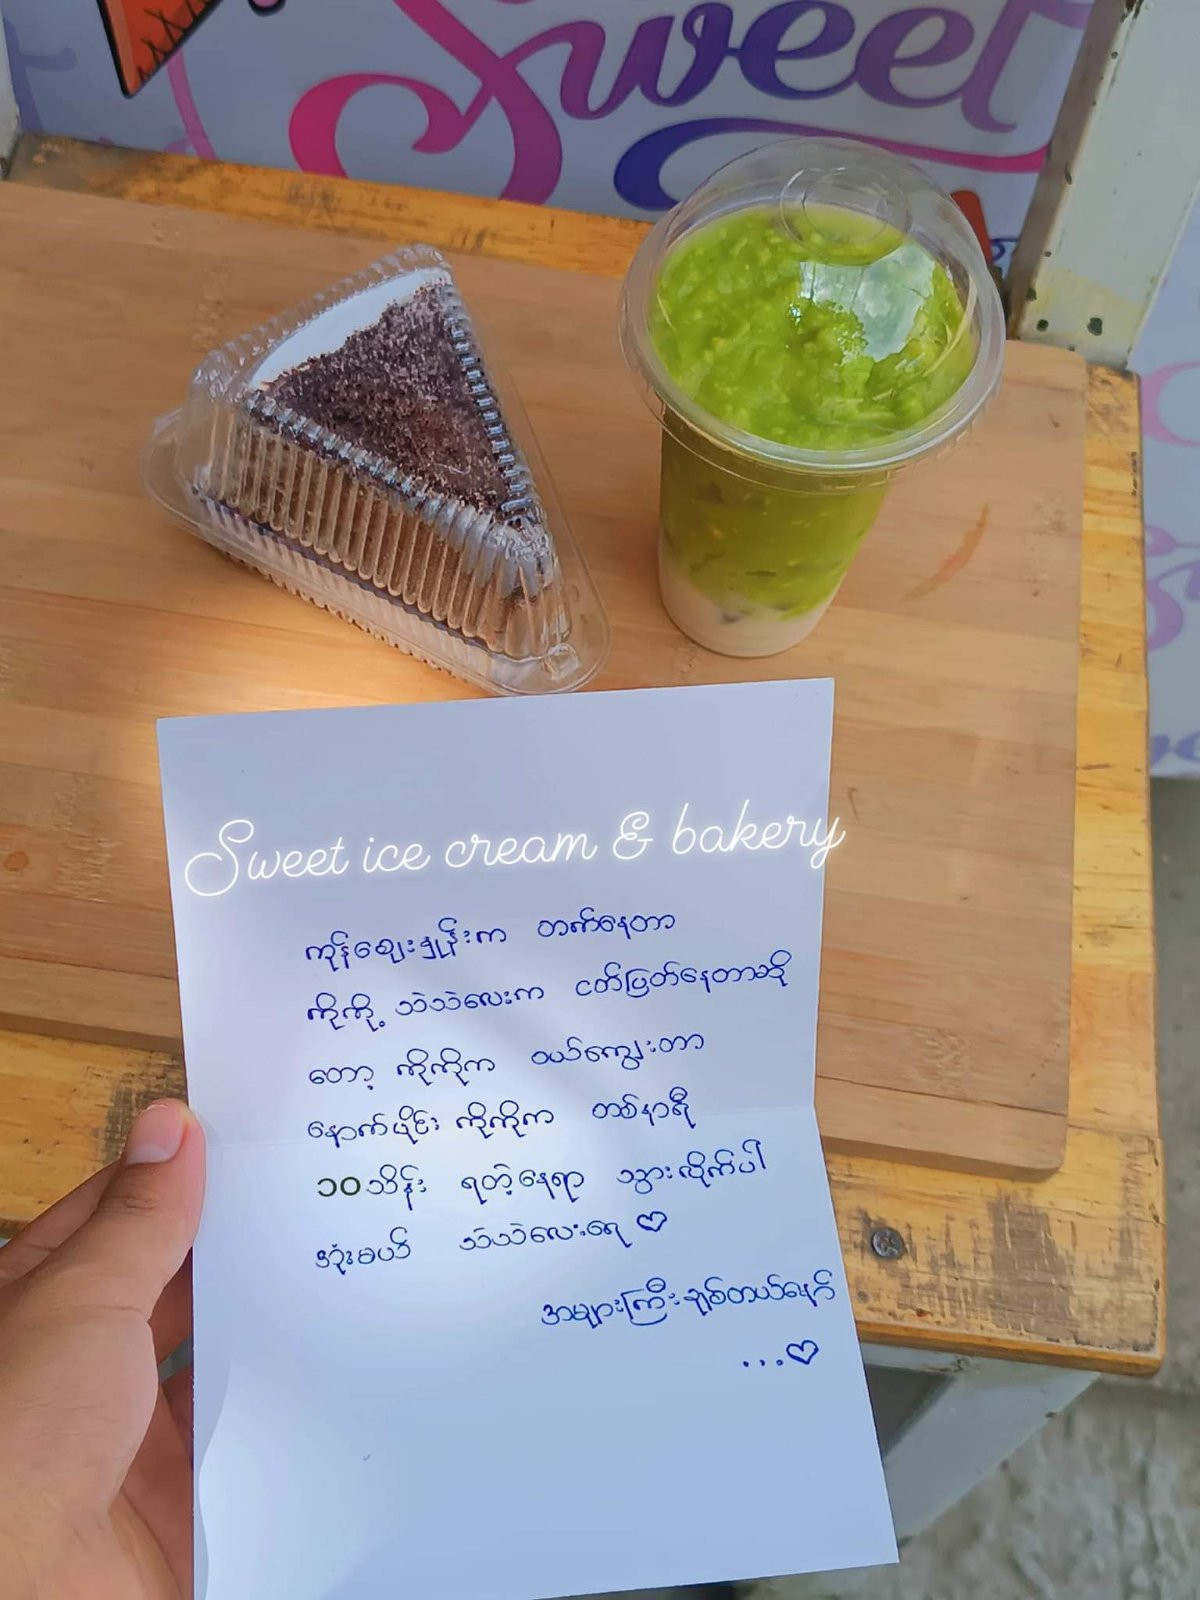 Sweet
Sweet ice cream & bakery
ကုန်ဈေးနှုန်းက တက်နေတာ
ကိုကို့ သဲသဲလေးက ငတ်ပြတ်နေတာဆို
တော့ ကိုကိုက ဝယ်ကျွေးတာ
နောက်ပိုင်း ကိုကိုက တစ်နာရီ
၁၀သိန်း ရတဲ့နေရာ သွားလိုက်ပါ
အုံးမယ် သဲသဲလေးရေ ♡
အများကြီးချစ်တယ်နော်
...♡